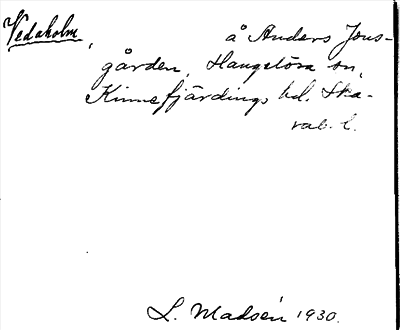 Vedaholm, å Anders Jons-
gården, Hangelösa sn,
Kinnefjärdings hd. Ska-
rab. l.
L. Madsén 1930.